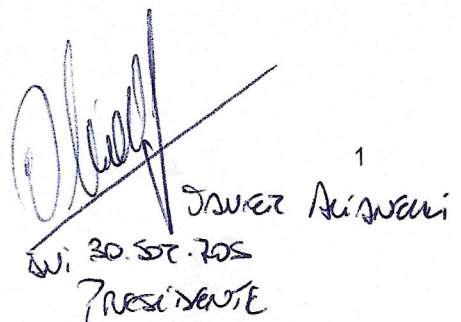 1
JAVIER ALIANELLI
DNI 30.
PRESIDENTE